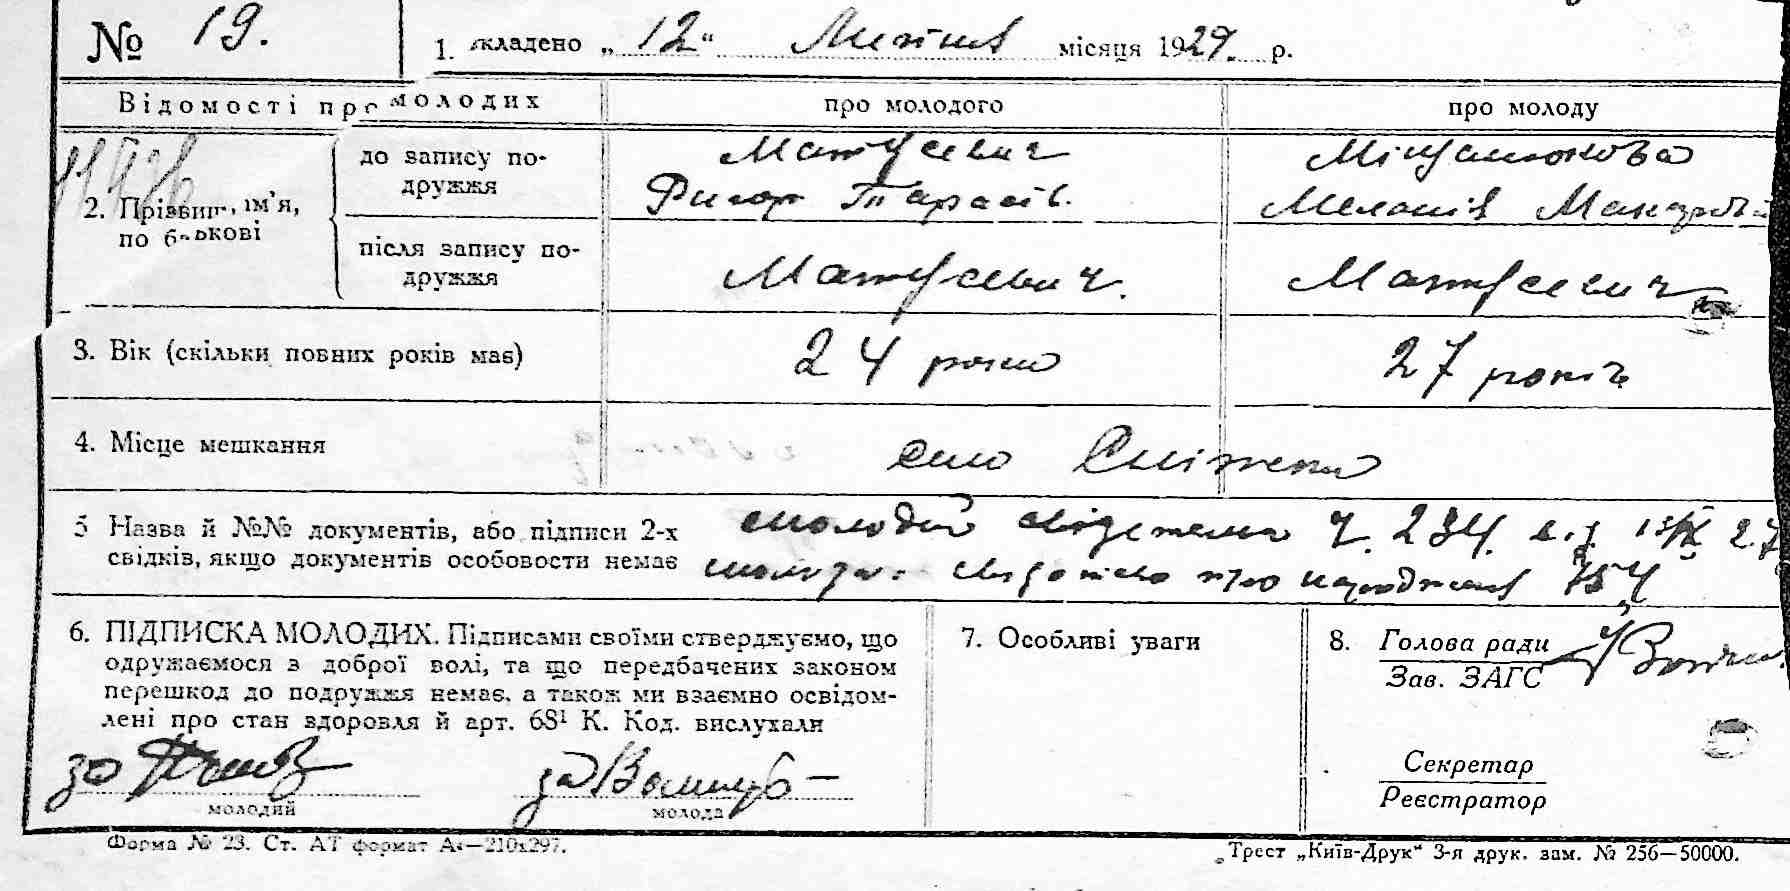 № 19.
1. складено „12“ Липня місяця 1929. р.
Відомості про молодих
про молодого
про молоду
2. Прізвище, ім'я, по батькові
до запису подружжя
Матусевич
Григор Тарасів.
Меланія Макарівна
після запису подружжя
Матусевич.
Матусевич
3. Вік (скільки повних років має)
24 роки
27 років
4. Місце мешкання
село Сніжки
5 Назва й №№ документів, або підписи 2-х
свідків, якщо документів особовости немає
молодий ч. 234. від 13/IX 27
молода: про народження 754
6. ПІДПИСКА МОЛОДИХ. Підписами своїми стверджуємо, що
одружаємося з доброї волі, та що передбачених законом
перешкод до подружжя немає, а також ми взаємно освідом-
лені про стан здоровля й арт. 68¹ К. Код. вислухали
за
молодий
за
молода
7. Особливі уваги
8. Голова ради
Зав. ЗАГС
Секретар
Реєстратор
Форма № 23. Ст. АТ формат А₄—210x297.
„Трест „Київ-Друк“ 3-я друк. зам. № 256—50000.